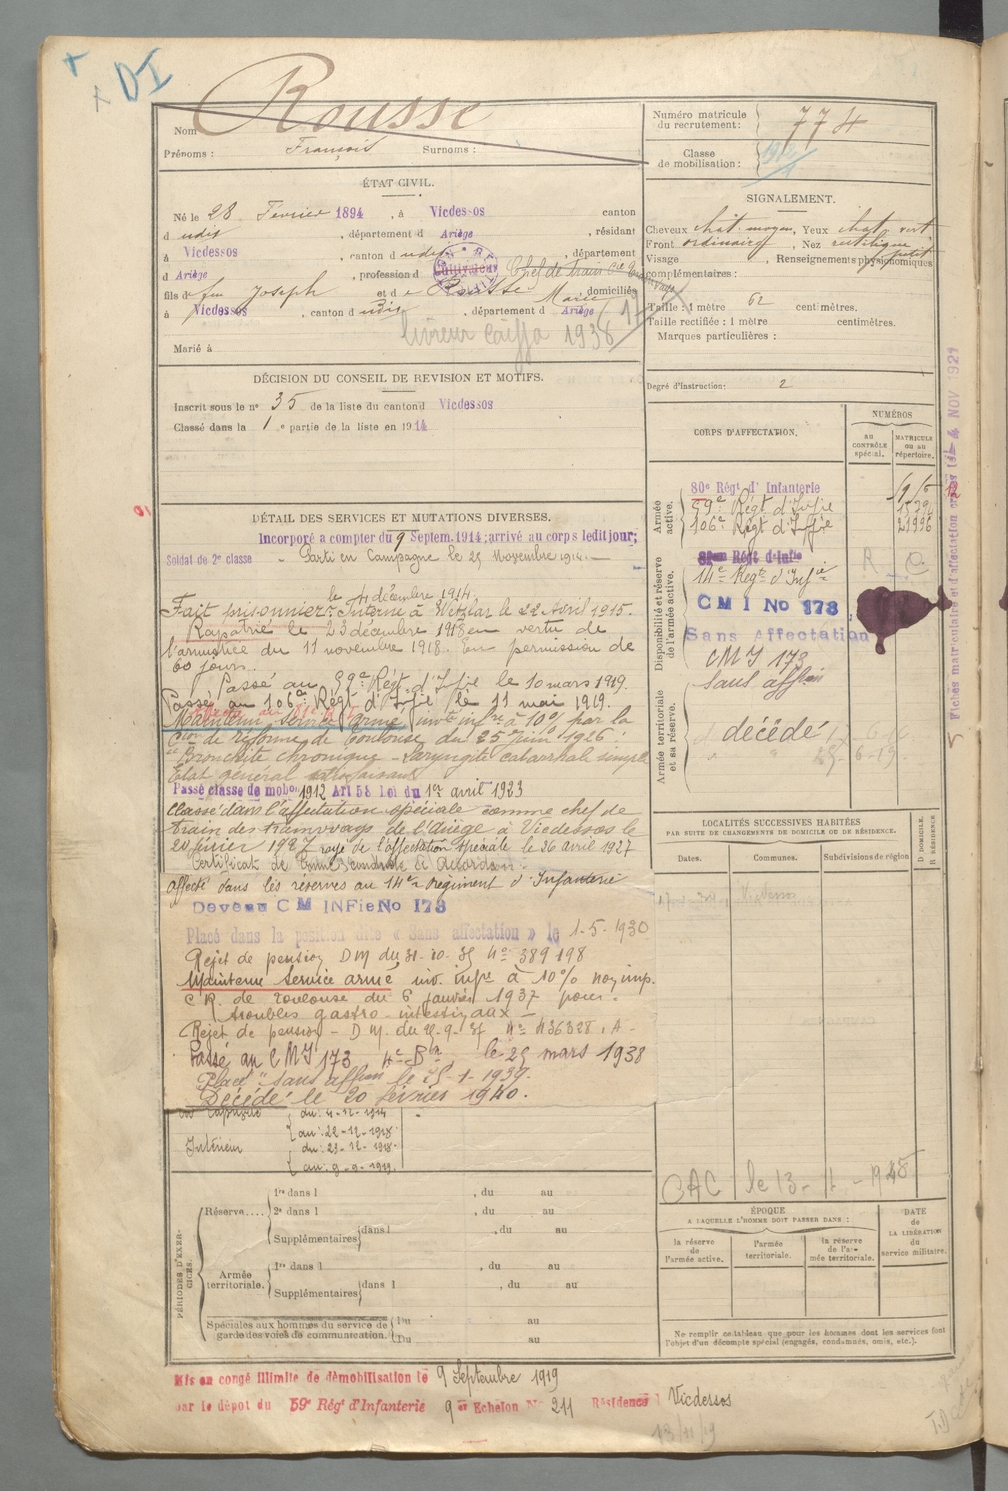 DI
Nom Rousse
Prénoms : François Surnoms :
Numéro matricule du recrutement : 774
Classe de mobilisation :
ÉTAT CIVIL.
Né le 28 Février 1894, à Vicdessos canton
d udit, département d Ariège, résidant
à Vicdessos, canton d udit, département
d Ariège, profession d Cultivateur Chef de train
fils de feu Joseph et de Rousse Marie domiciliés
à Vicdessos, canton d udit, département d Ariège
livreur 1938
Marié à
SIGNALEMENT.
Cheveux chât. moyen, Yeux chât. vert
Front ordinaire, Nez rectiligne
Visage , Renseignements physionomiques
complémentaires :
Taille : 1 mètre 62 centimètres.
Taille rectifiée : 1 mètre centimètres.
Marques particulières :
Degré d'instruction : 2
DÉCISION DU CONSEIL DE REVISION ET MOTIFS.
Inscrit sous le n° 35 de la liste du canton d Vicdessos
Classé dans la 1e partie de la liste en 1914
DÉTAIL DES SERVICES ET MUTATIONS DIVERSES.
Incorporé a compter du 9 Septem. 1914; arrivé au corps ledit jour;
Soldat de 2e classe - Parti en Campagne le 25 novembre 1914.-
le 4 décembre 1914.
Fait prisonnier. Interné à Wetzlar le 22 Avril 1915.
Rapatrié le 23 décembre 1918 en vertu de
l'armistice du 11 novembre 1918. En permission de
60 jours.
Passé au 59e Régt d'Infie le 10 mars 1919.
Passé au 106e Régt d'Infie le 11 mai 1919.
Maintenu service armé invte infre à 10% par la
Cion de réforme de Toulouse du 25 juin 1926 :
"Bronchite chronique - Laryngite catarrhale simple
Etat général
Passé classe de mobon 1912 Art 58 Loi du 1er avril 1923
Classé dans l'affectation spéciale comme chef de
train des tramways de l'Ariège à Vicdessos le
20 février 1927 rayé de l'affectation spéciale le 26 avril 1927
Certificat de
affecté dans les réserves au 14e Régiment d'Infanterie
Devenu C M INFie No 173
Placé dans la position dite « Sans affectation » le 1-5-1930
Rejet de pension DM du 31-10-35 No 389198
Maintenu Service armé inv. infre à 10% non imp.
C R. de Toulouse du 6 janvier 1937 pour :
troubles gastro-intestinaux -
Rejet de pension - D M. du No 436328. A -
Passé au CMI 173 4e Bon le 25 mars 1938
Placé "sans affon le 15-1-1939.
Décédé le 20 février 1940.
En captivité du : 4-12-1914
au : 22-12-1918
Intérieur du : 23-12-1918
au : 9-9-1919
CORPS D'AFFECTATION.
NUMÉROS
au CONTRÔLE spécial.
MATRICULE ou au répertoire.
Armée active.
80e Régt d'Infanterie
59e Régt d'Infie
106e Régt d'Infie 21996
Disponibilité et réserve de l'armée active.
Régt d'Infie
14e Régt d'Infie R
C M I No 173
Sans Affectation
CMI 173
sans affon
Armée territoriale et sa réserve.
décédé
Fiches matriculaire et d'affectation 4 NOV 1921
LOCALITÉS SUCCESSIVES HABITÉES
PAR SUITE DE CHANGEMENTS DE DOMICILE OU DE RÉSIDENCE.
Dates. Communes. Subdivisions de région
D DOMICILE.
R RÉSIDENCE
Vicdessos
CAC le 13-11-1945
ÉPOQUE
A LAQUELLE L'HOMME DOIT PASSER DANS :
la réserve de l'armée active.
l'armée territoriale.
la réserve de l'armée territoriale.
DATE de LA LIBÉRATION du service militaire.
Ne remplir ce tableau que pour les hommes dont les services font
l'objet d'un décompte spécial (engagés, condamnés, omis, etc.).
PÉRIODES D'EXERCICES.
Réserve....
1re dans l , du au
2e dans l , du au
Supplémentaires dans l , du au
Armée territoriale.
1re dans l , du au
Supplémentaires dans l , du au
Spéciales aux hommes du service de garde des voies de communication.
Du au
Du au
Mis en congé illimité de démobilisation le 9 Septembre 1919
par le dépôt du 59e Régt d'Infanterie 9e Echelon No 211 Résidence : Vicdessos